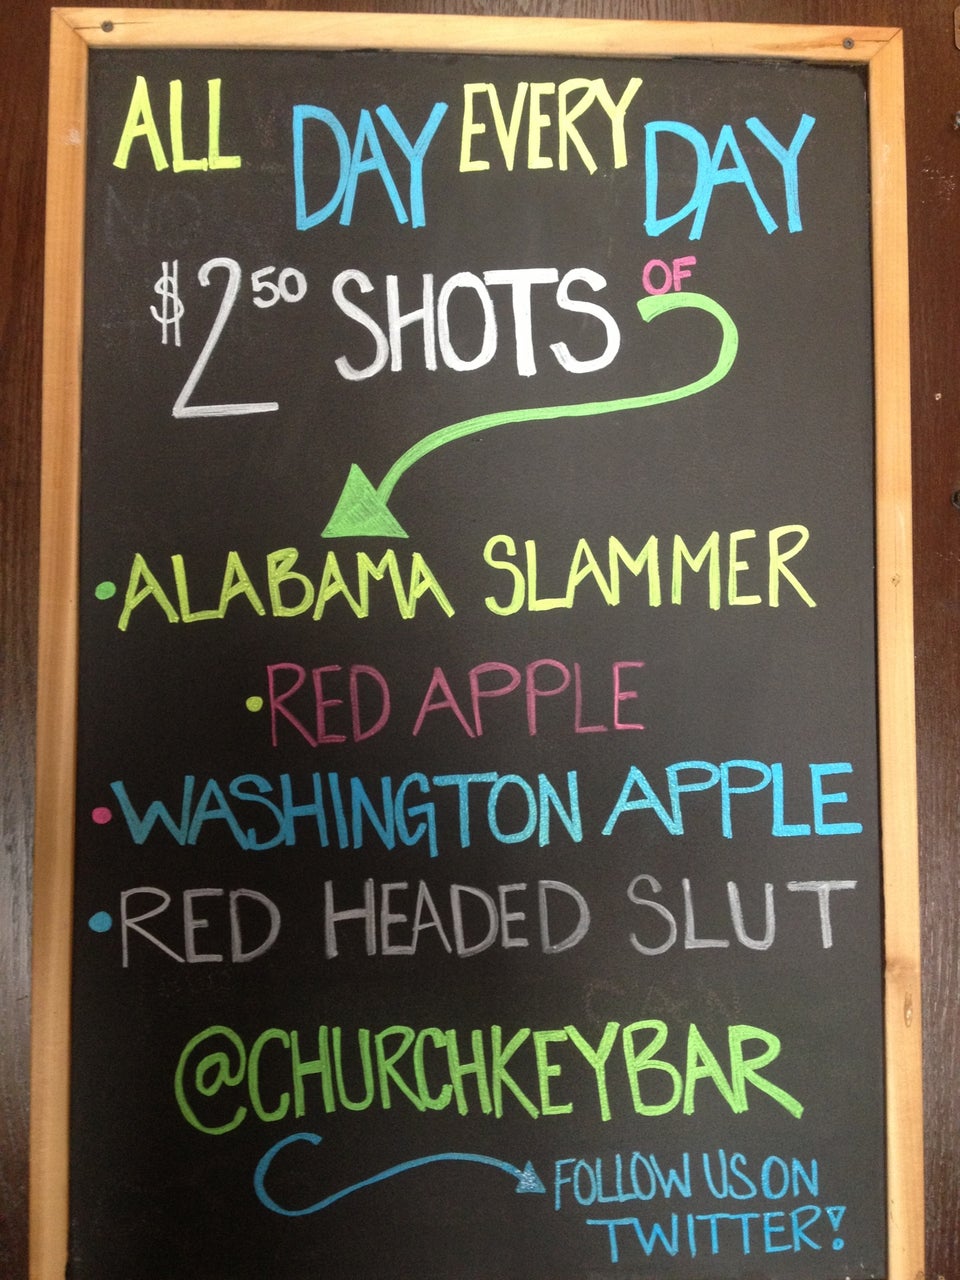 ALL DAY EVERY DAY
$2.50 SHOTS OF
•ALABAMA SLAMMER
•RED APPLE
•WASHINGTON APPLE
•RED HEADED SLUT
@CHURCHKEYBAR
FOLLOW US ON
TWITTER!